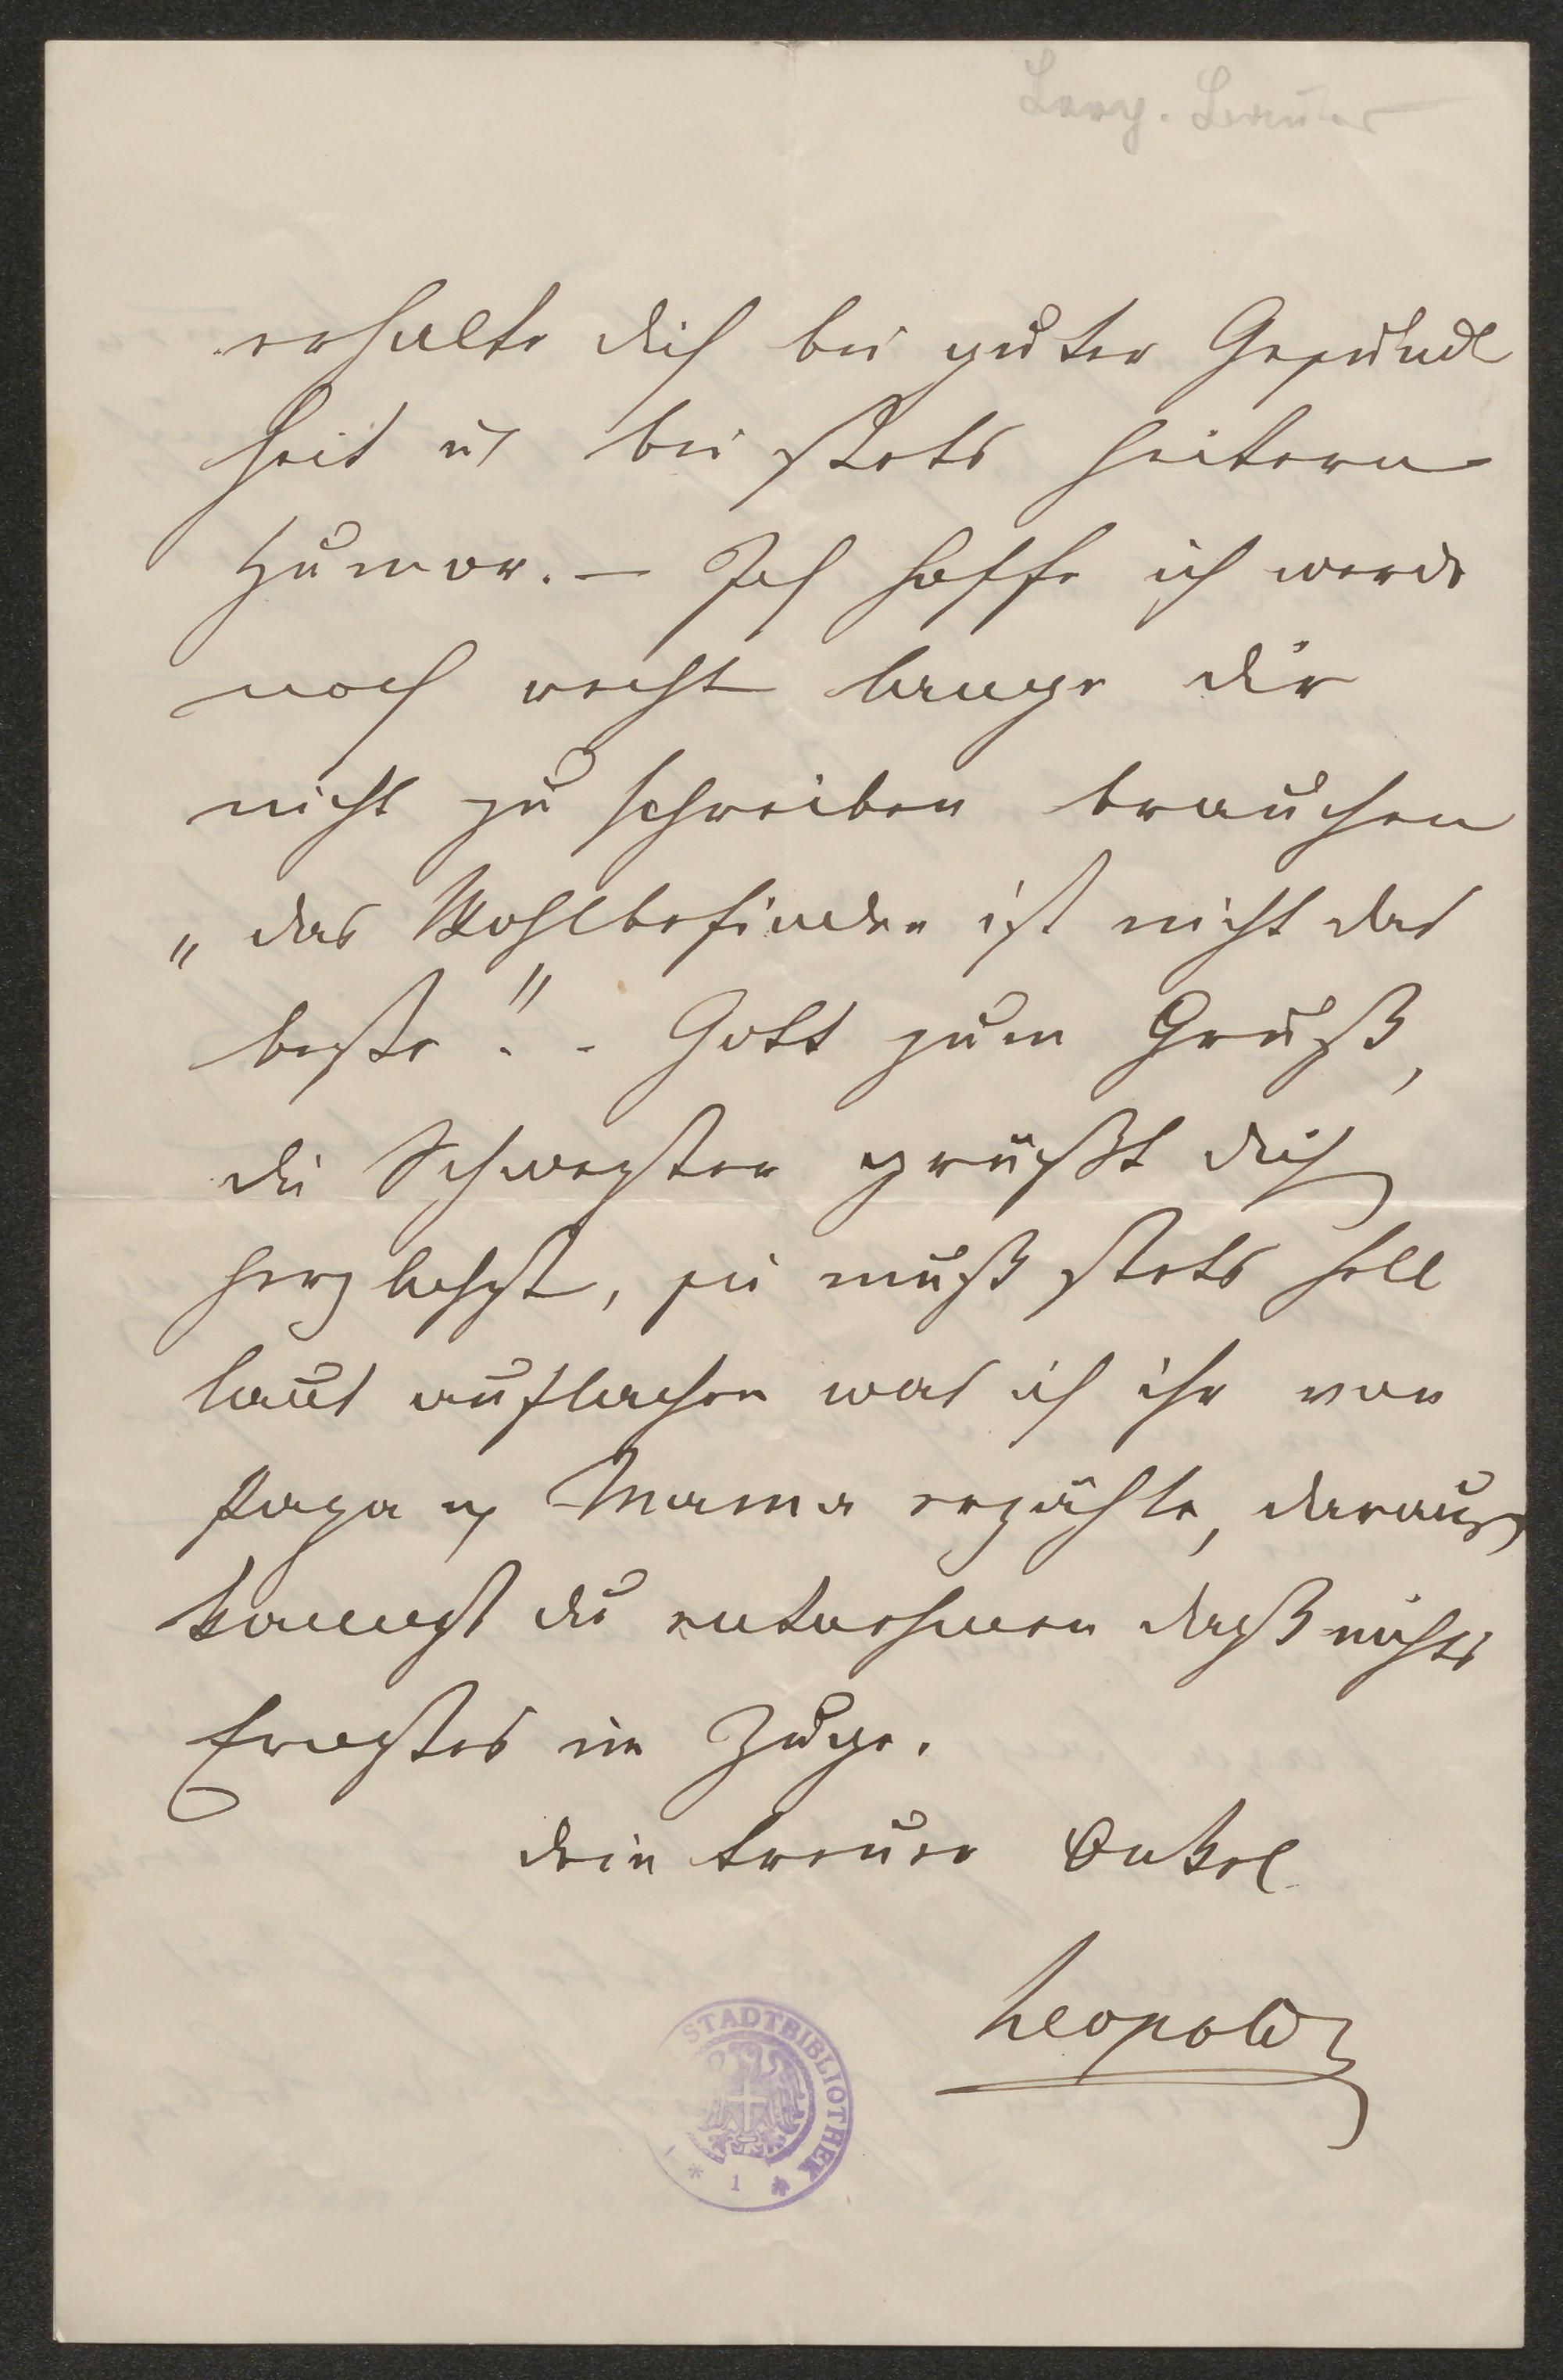 erhalte dich bei guter Gesund
heit u bei stets heitern
Humor. — Ich hoffe ich werde
noch recht lange dir
nicht zu schreiben brauchen
„das Wohlbefinden ist nicht das
beste." - Gott zum Gruß,
die Schwester grüßt dich
herzlichst, sie muß stets hell
laut auflachen was ich ihr von
Papa u Mama erzähle, daraus
kannst du entnehmen daß nichts
Ernstes im Zuge.
dein treuer Onkel
Leopold
STADTBIBLIOTHEK
* 1 *